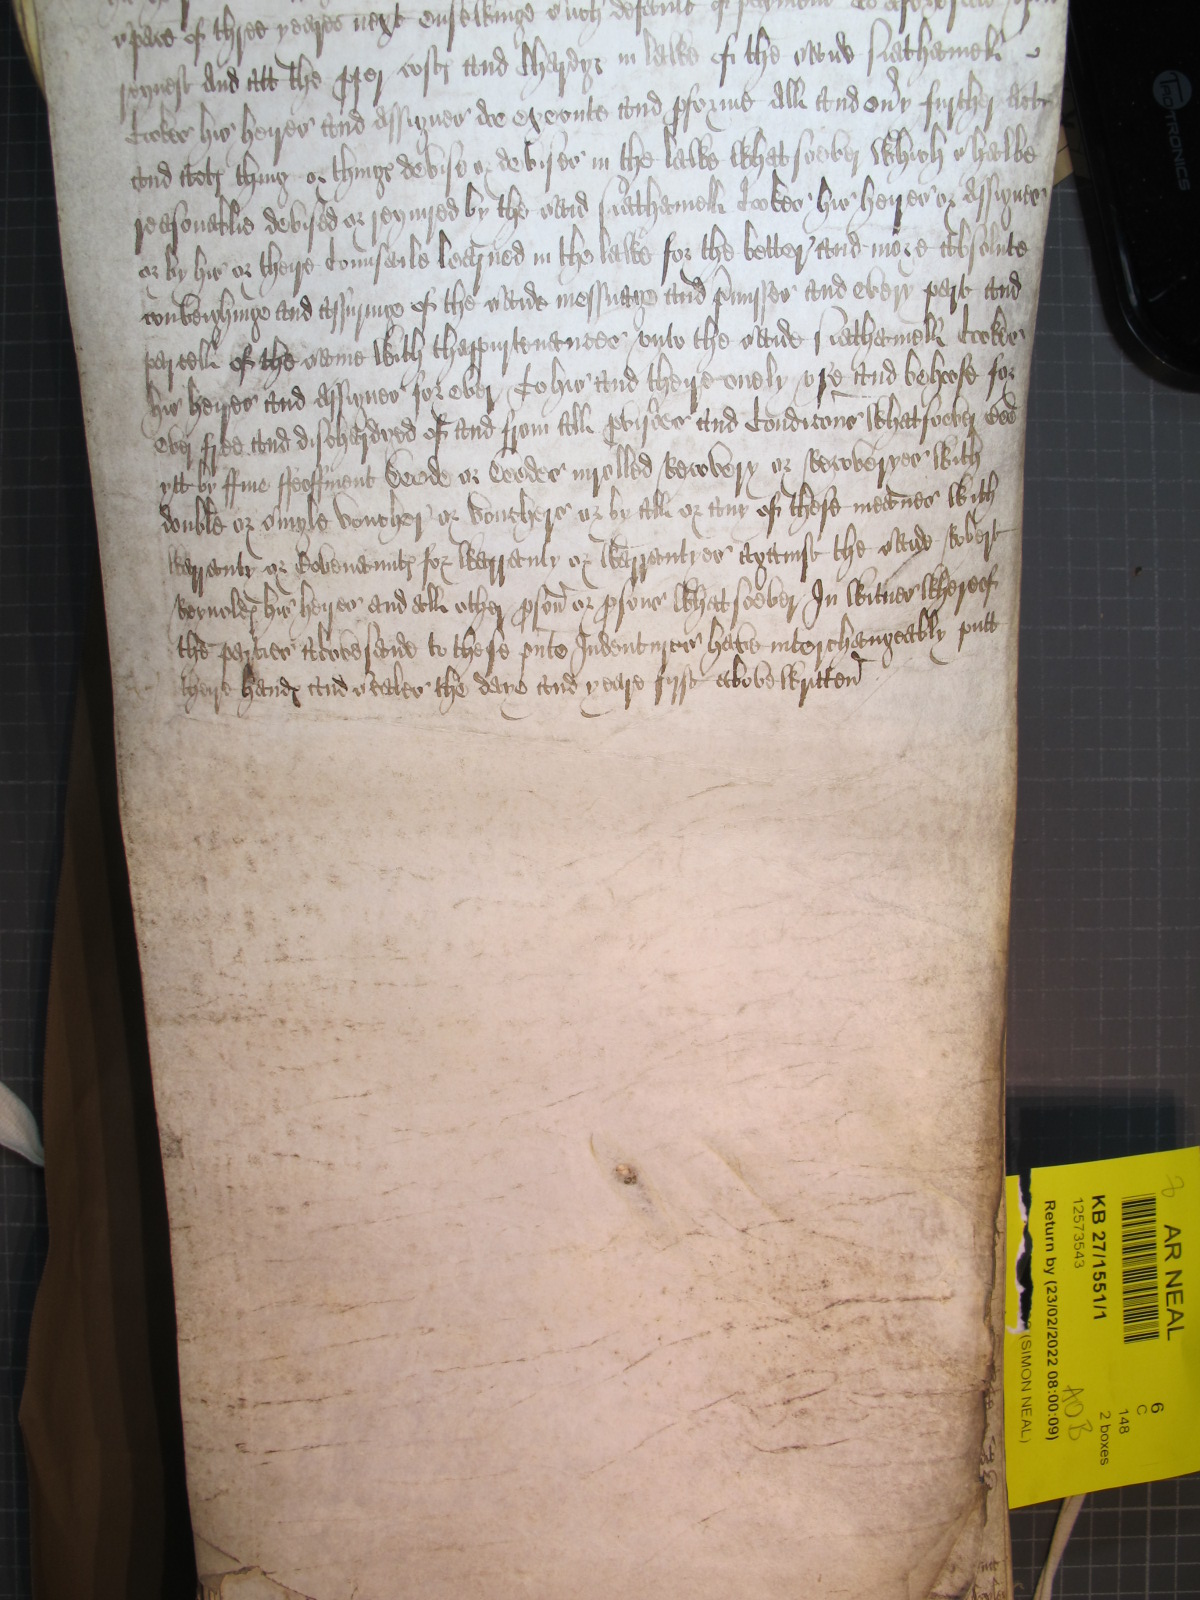 space of three yeares next ensewinge such defaulte of payment as aforesaid upon
request and att the pper costs and Chardgs in lawe of the saide Nathaniell
Cooker his heires and Assignes do execute and pforme all and evy further Acte
and Acts thing or things devise or devises in the lawe whatsoever which shalbe
reasonablie devised or required by the said Nathaniell Cooker his heires or Assignes
or by his or theire Counsaile learned in the lawe for the better and more absolute
conveighinge and assuringe of the saide messuage and pmisses and every part and
parcell of the same with thappurtenances unto the saide Nathaniell Cooker
his heires and Assignes for ever To his and theire onely use and behoofe for
ever free and dischardged of and from all and Condicons whatsoever bee
ytt by ffine ffeoffment Deede or Deedes inrolled Recovery or Recoveryes with
double or single voucher or vouchers or by all or any of these meanes with
warranty or Covenaunts for warranty or warrantyes against the saide Robert
Reynolds his heires and all other pson or psons whatsoever In witnes whereof
the parties abovesaide to these pnte Indentures have interchangeably putt
theire hands and seales the daye and yeare fyrst above written
TROTRONICS
AR NEAL
KB 27/1551/1
12573543
(SIMON NEAL)
Return by (23/02/2022 08:00:09)
6
C
148
2 boxes
AOB